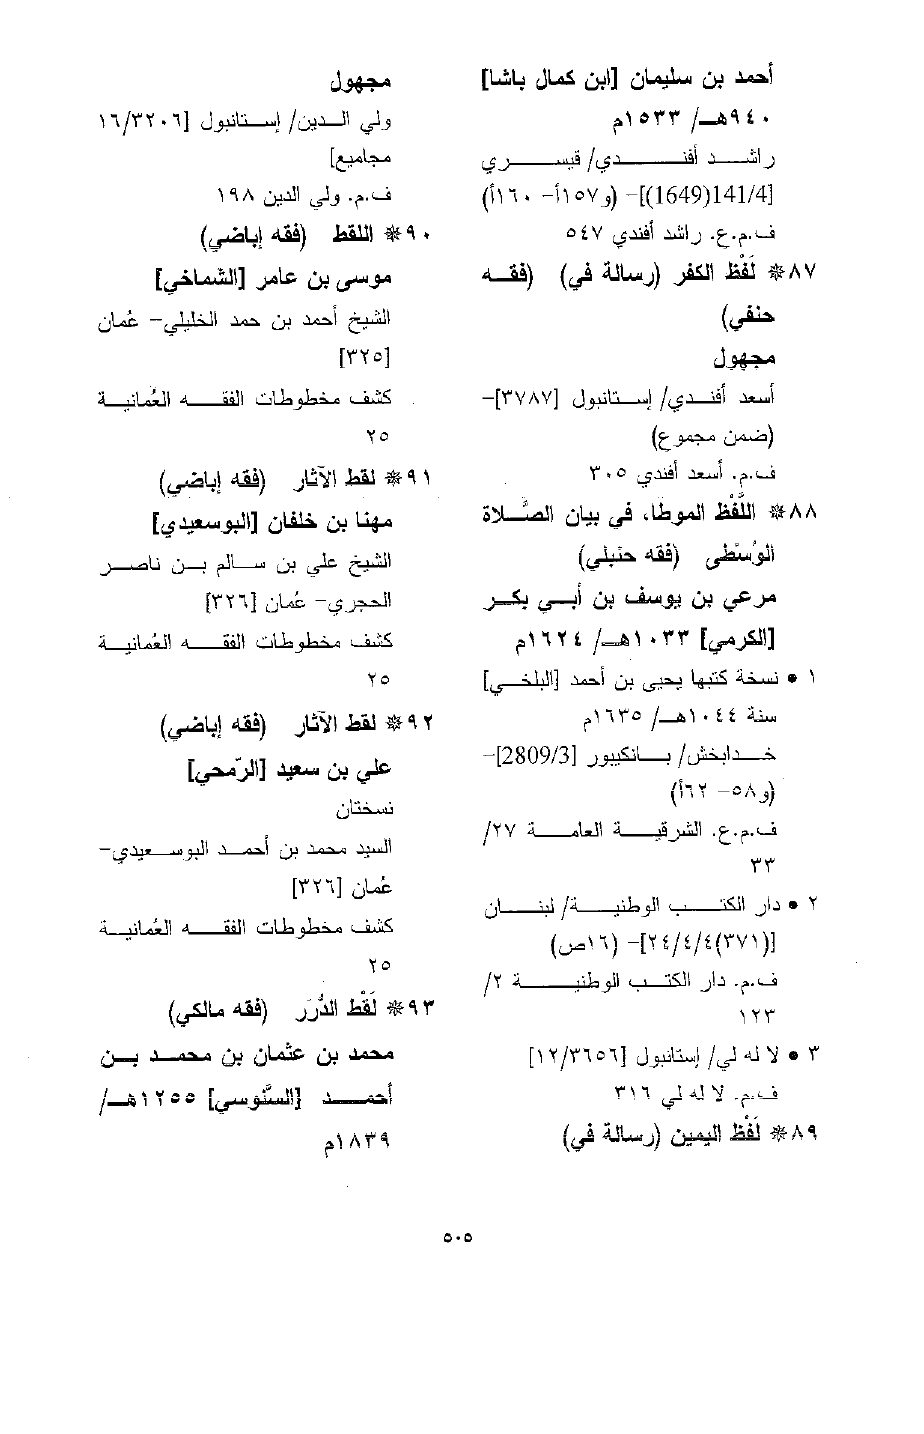 أحمد بن سليمان [ابن كمال باشا]
٩٤٠هـ/ ١٥٣٣م
راشد أفندي/ قيسري
[141/4(1649)]- (و١٥٧أ- ١٦٠أ)
ف.م.ع. راشد أفندي ٥٤٧
٨٧* لَفْظ الكفر (رسالة في) (فقه
حنفي)
مجهول
أسعد أفندي/ إستانبول [٣٧٨٧]-
(ضمن مجموع)
ف.م. أسعد أفندي ٣٠٥
٨٨* اللَّفْظ الموطا، في بيان الصَّلاة
الوُسْطى (فقه حنبلي)
مرعي بن يوسف بن أبي بكر
[الكرمي] ١٠٣٣هـ/ ١٦٢٤م
١ • نسخة كتبها يحيى بن أحمد [البلخي]
سنة ١٠٤٤هـ/ ١٦٣٥م
خدابخش/ بانكيبور [2809/3]-
(و٥٨- ٦٢أ)
ف.م.ع. الشرقية العامة ٢٧/
٣٣
٢ • دار الكتب الوطنية/ لبنان
[(٣٧١)٢٤/٤/٤]- (١٦ص)
ف.م. دار الكتب الوطنية ٢/
١٢٣
٣ • لا له لي/ إستانبول [١٢/٣٦٥٦]
ف.م. لا له لي ٣١٦
٨٩* لَفْظ اليمين (رسالة في)
مجهول
ولي الدين/ إستانبول [١٦/٣٢٠٦
مجاميع]
ف.م. ولي الدين ١٩٨
٩٠* اللقط (فقه إباضي)
موسى بن عامر [الشماخي]
الشيخ أحمد بن حمد الخليلي- عُمان
[٣٢٥]
كشف مخطوطات الفقه العُمانية
٢٥
٩١* لقط الآثار (فقه إباضي)
مهنا بن خلفان [البوسعيدي]
الشيخ علي بن سالم بن ناصر
الحجري- عُمان [٣٢٦]
كشف مخطوطات الفقه العُمانية
٢٥
٩٢* لقط الآثار (فقه إباضي)
علي بن سعيد [الرّمحي]
نسختان
السيد محمد بن أحمد البوسعيدي-
عُمان [٣٢٦]
كشف مخطوطات الفقه العُمانية
٢٥
٩٣* لَقْط الدُّرَر (فقه مالكي)
محمد بن عثمان بن محمد بن
أحمد [السَّنُوسي] ١٢٥٥هـ/
١٨٣٩م
٥٠٥